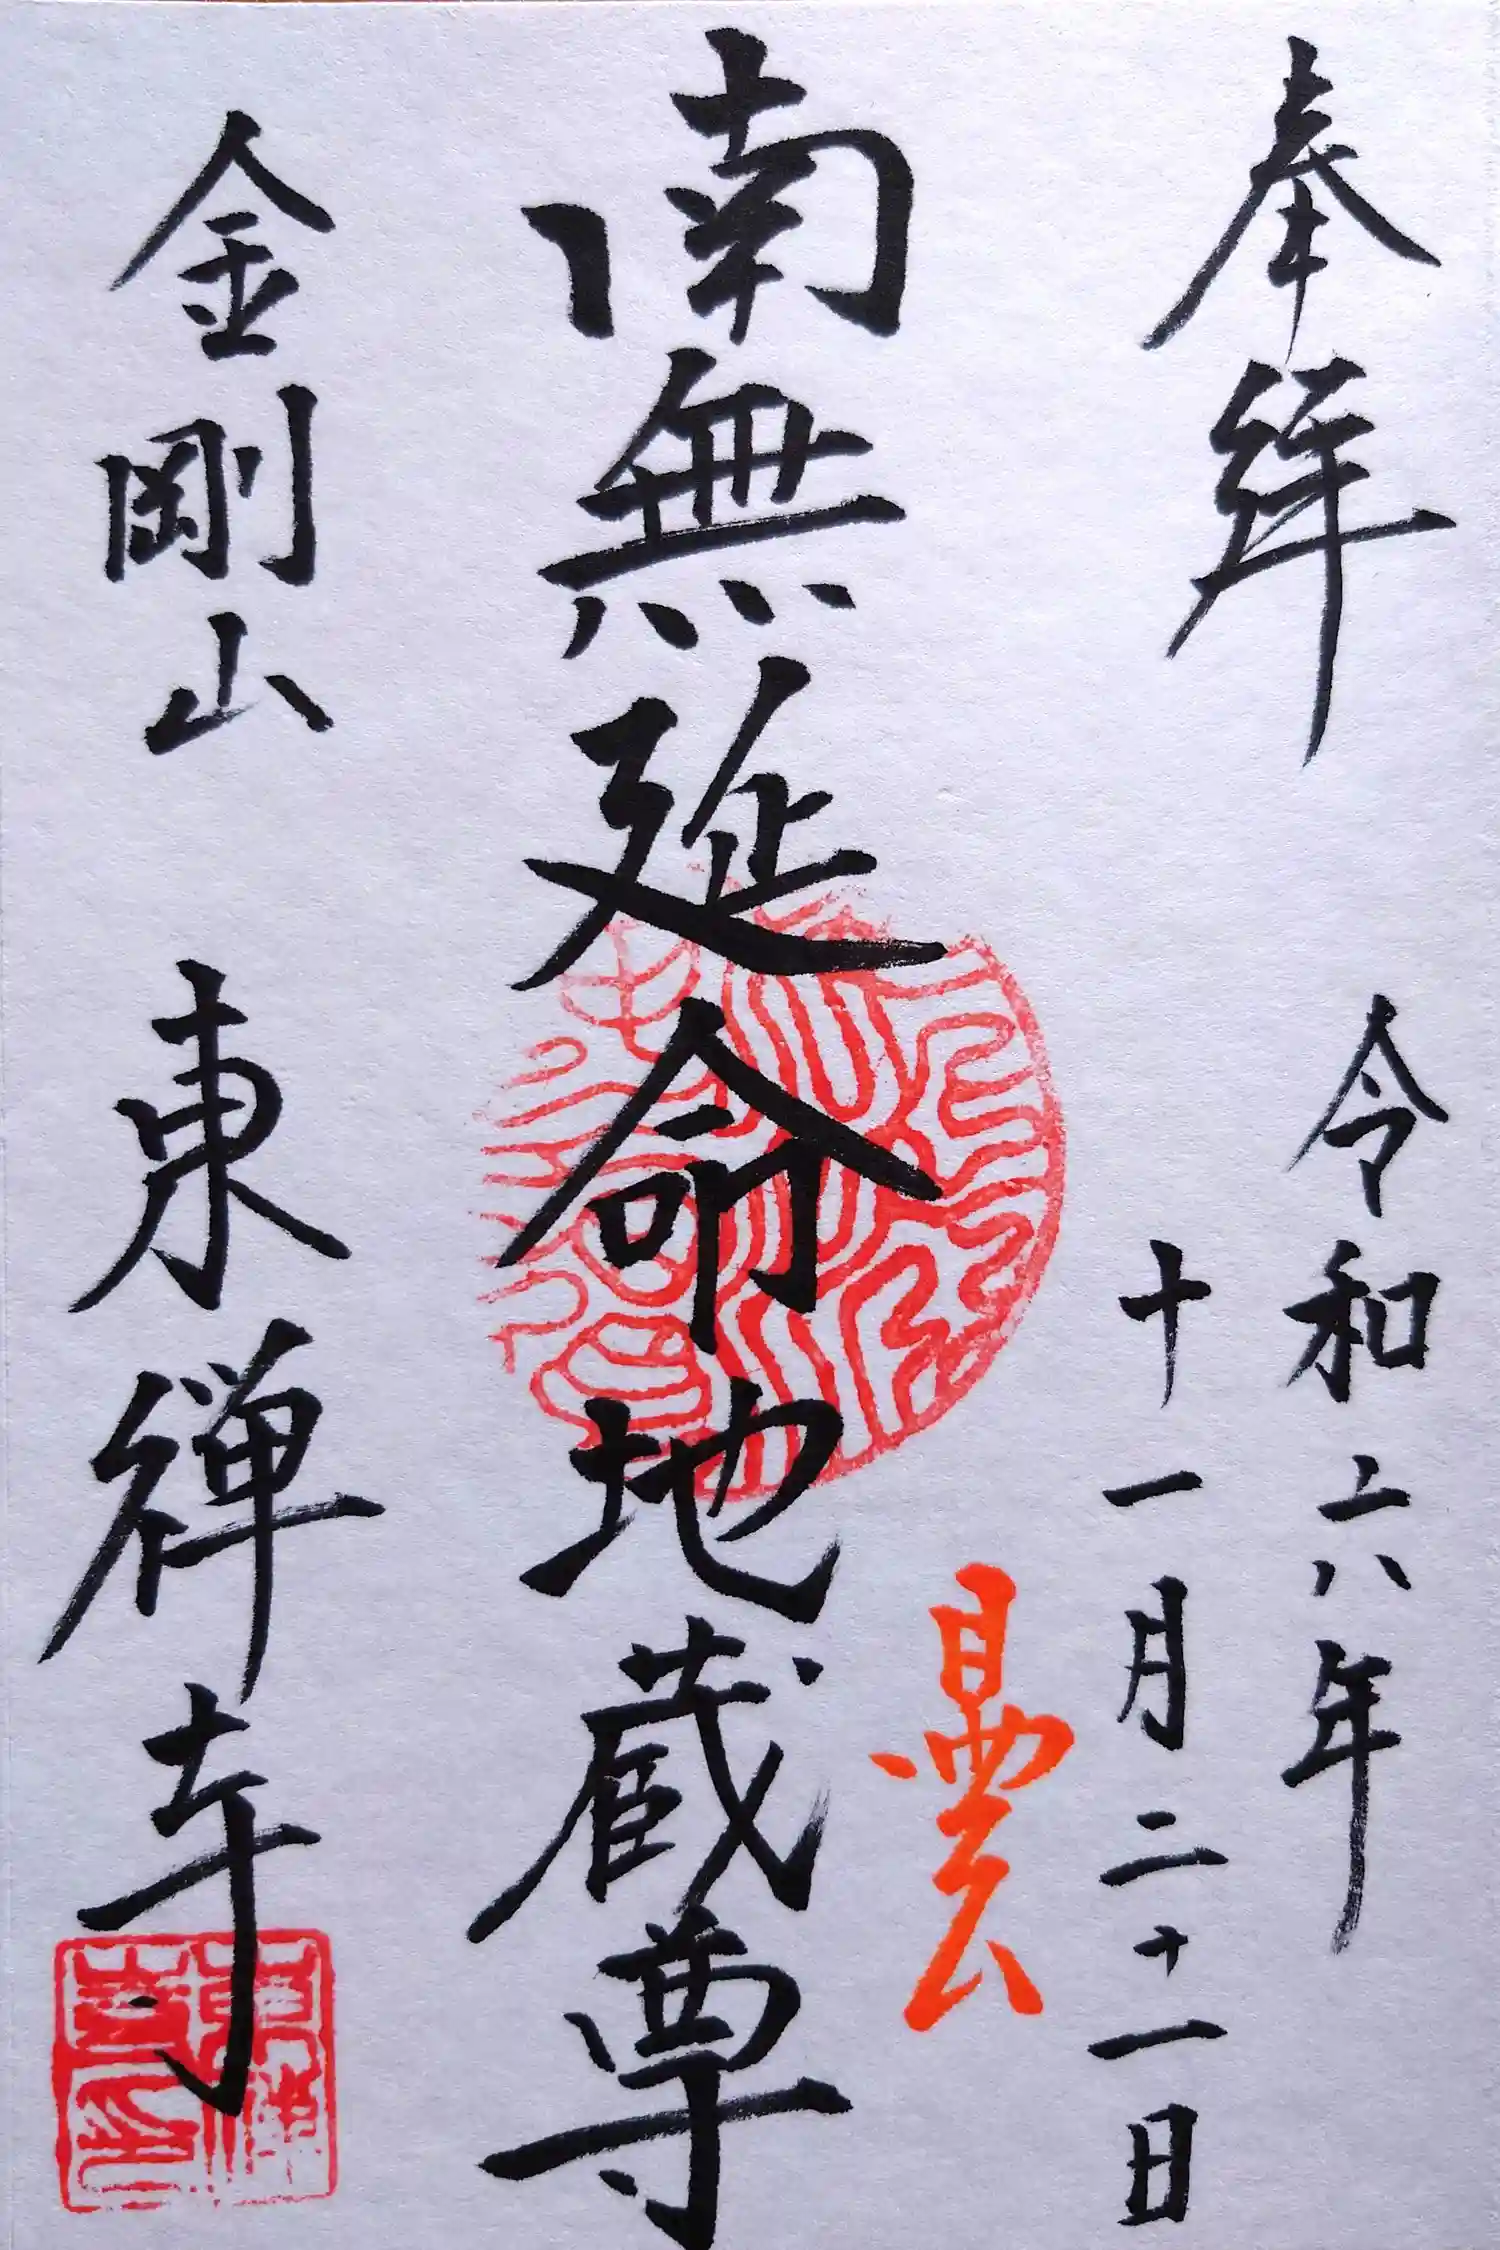 奉拝
令和六年
十一月二十一日
曇
南無延命地蔵尊
金剛山 東禅寺